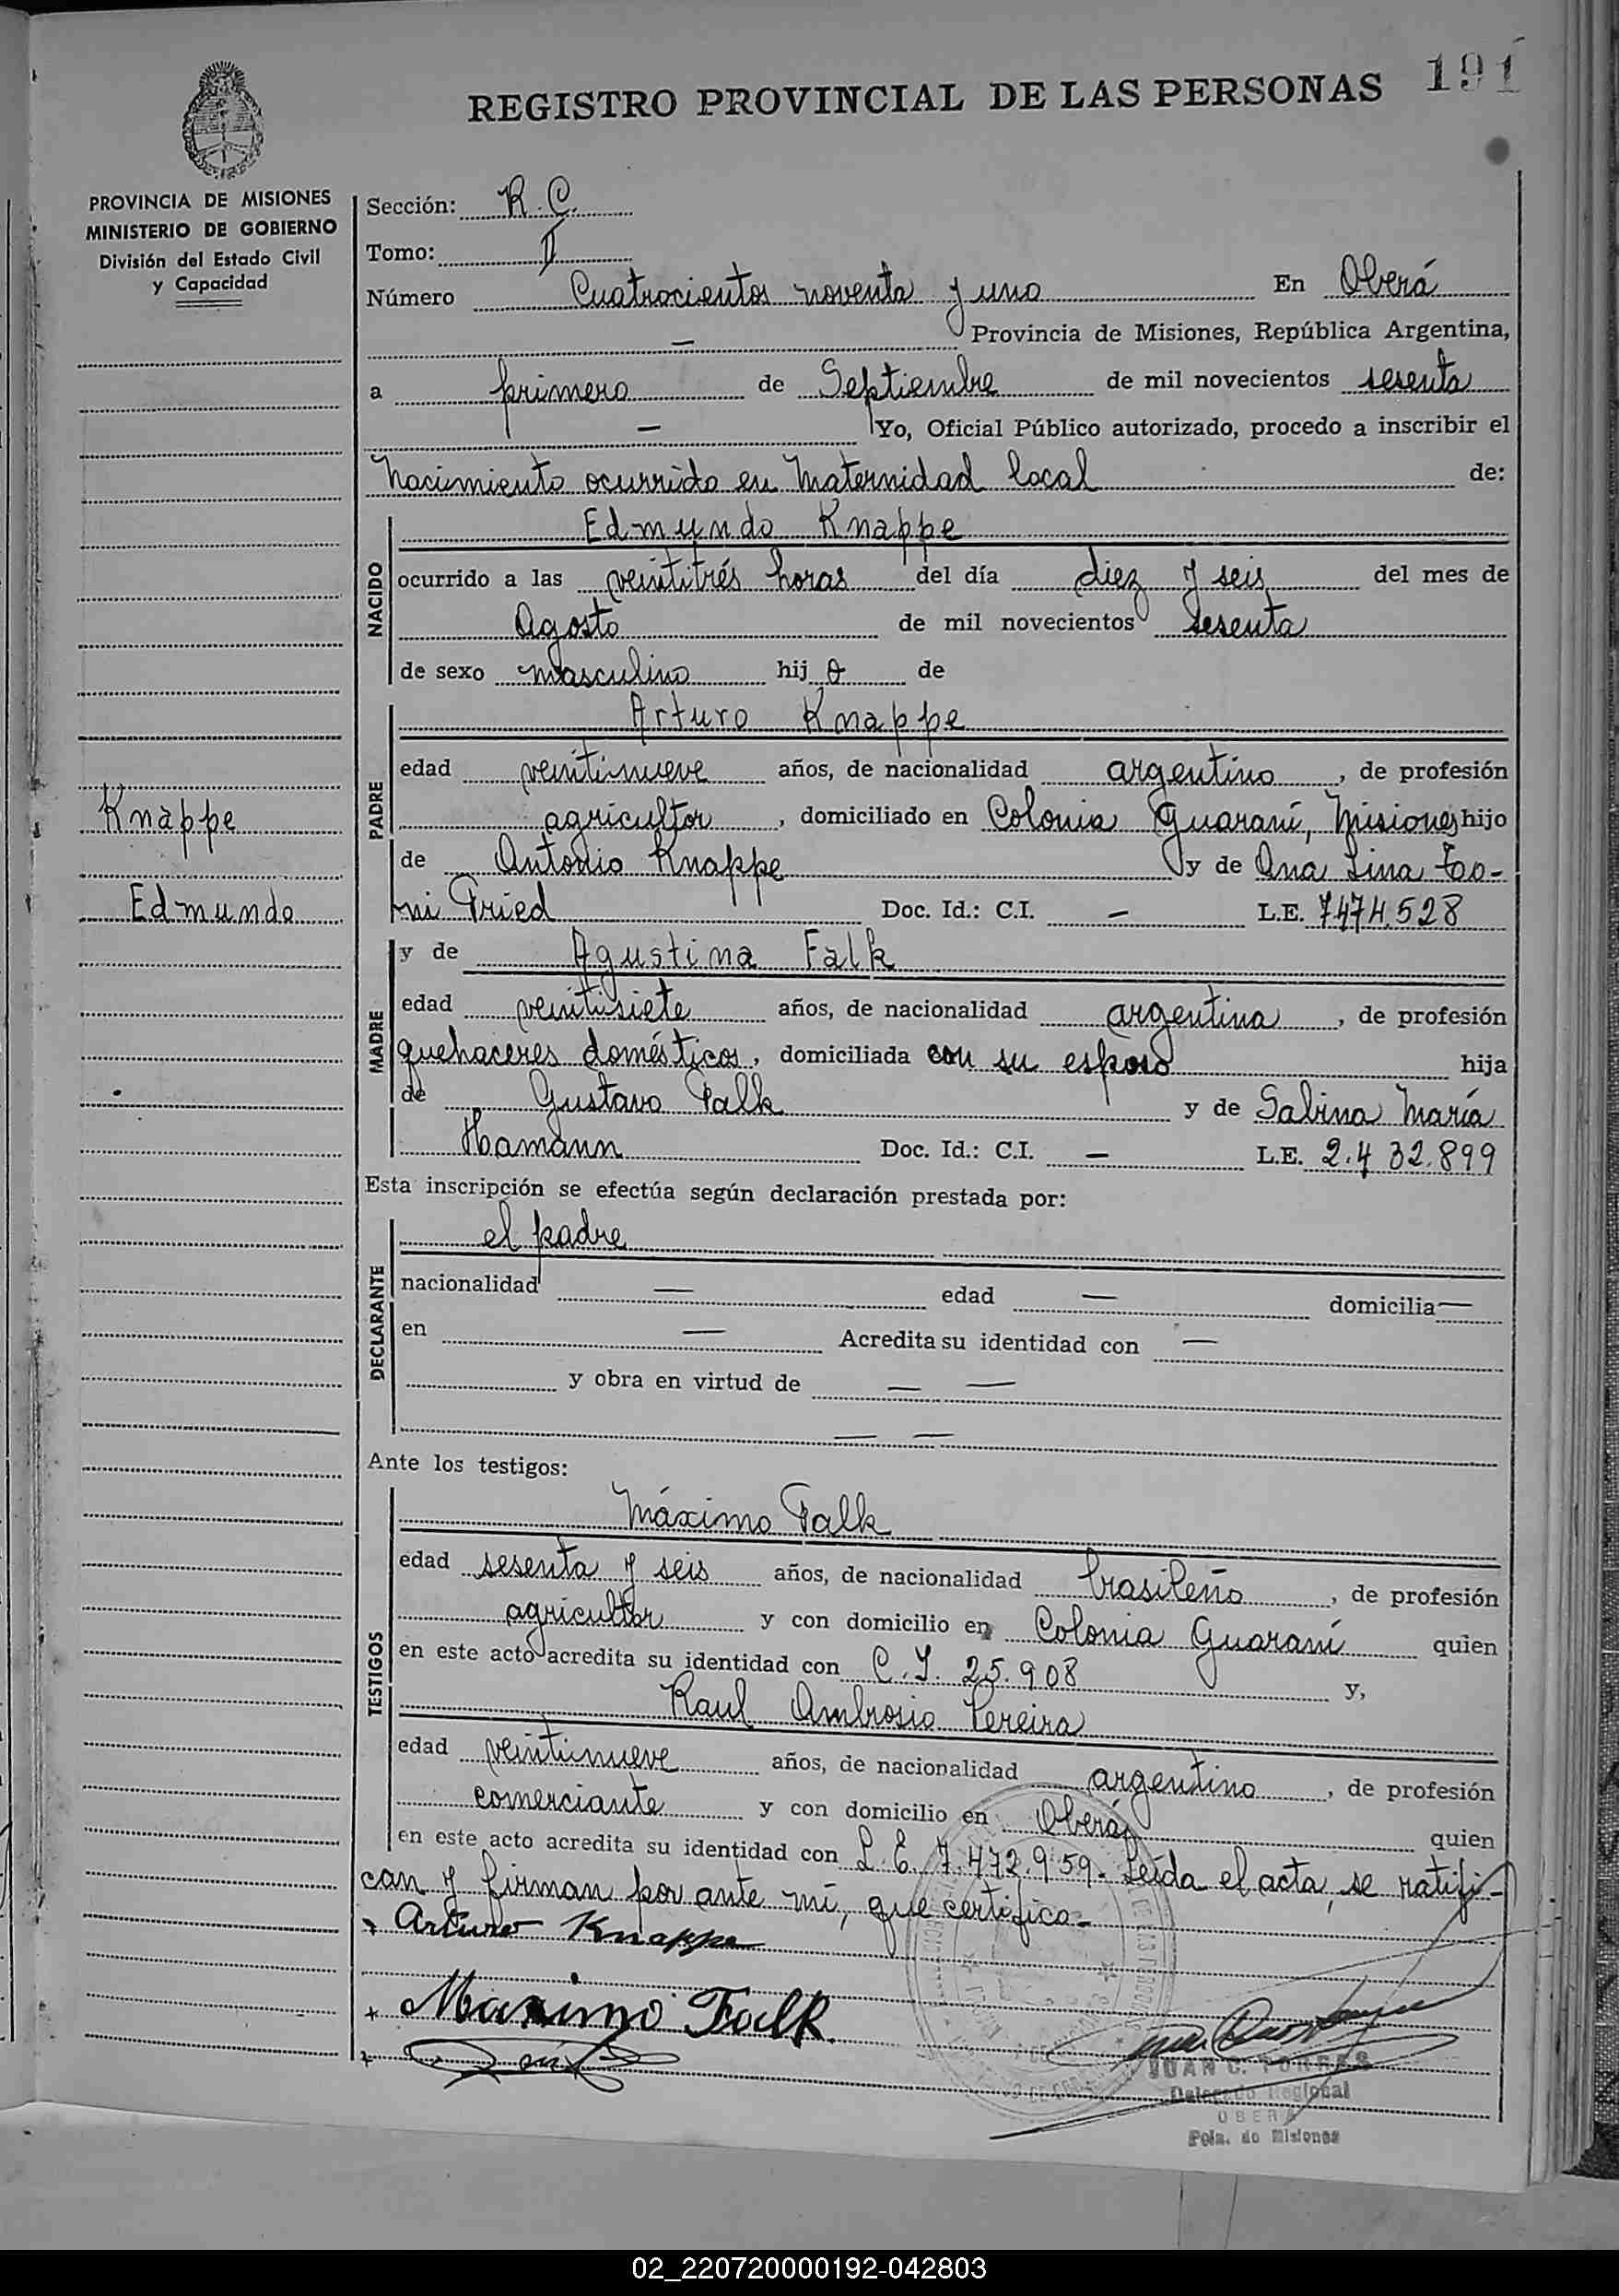 REGISTRO PROVINCIAL DE LAS PERSONAS 191
PROVINCIA DE MISIONES
MINISTERIO DE GOBIERNO
División del Estado Civil
y Capacidad
Knappe
Edmundo
Sección: R.C.
Tomo: II
Número Cuatrocientos noventa y uno En Oberá
— Provincia de Misiones, República Argentina,
a primero de Septiembre de mil novecientos sesenta
— Yo, Oficial Público autorizado, procedo a inscribir el
Nacimiento ocurrido en Maternidad local de:
NACIDO
Edmundo Knappe
ocurrido a las veintitrés horas del día diez y seis del mes de
Agosto de mil novecientos sesenta
de sexo masculino hijo de
PADRE
Arturo Knappe
edad veintinueve años, de nacionalidad argentino, de profesión
agricultor, domiciliado en Colonia Guaraní, Misiones hijo
de Antonio Knappe y de Ana Lina
Fried Doc. Id.: C.I. — L.E. 7474.528
MADRE
y de Agustina Falk
edad veintisiete años, de nacionalidad argentina, de profesión
quehaceres domésticos, domiciliada con su esposo hija
de Gustavo Falk y de Sabina María
Hamann Doc. Id.: C.I. — L.E. 2.432.899
Esta inscripción se efectúa según declaración prestada por:
DECLARANTE
el padre
nacionalidad — edad — domicilia —
en — Acredita su identidad con —
y obra en virtud de — —
— —
Ante los testigos:
TESTIGOS
Máximo Falk
edad sesenta y seis años, de nacionalidad brasileño, de profesión
agricultor y con domicilio en Colonia Guaraní quien
en este acto acredita su identidad con C.I. 25.908 y,
Raul Ambrosio Pereira
edad veintinueve años, de nacionalidad argentino, de profesión
comerciante y con domicilio en Oberá quien
en este acto acredita su identidad con L.E. 7.472.959. Leída el acta, se ratifi-
can y firman por ante mí, que certifico.
Arturo Knappe
Maximo Falk
JUAN C. TORRES
Delegado Regional
OBERA
Pcia. de Misiones
02_220720000192-042803